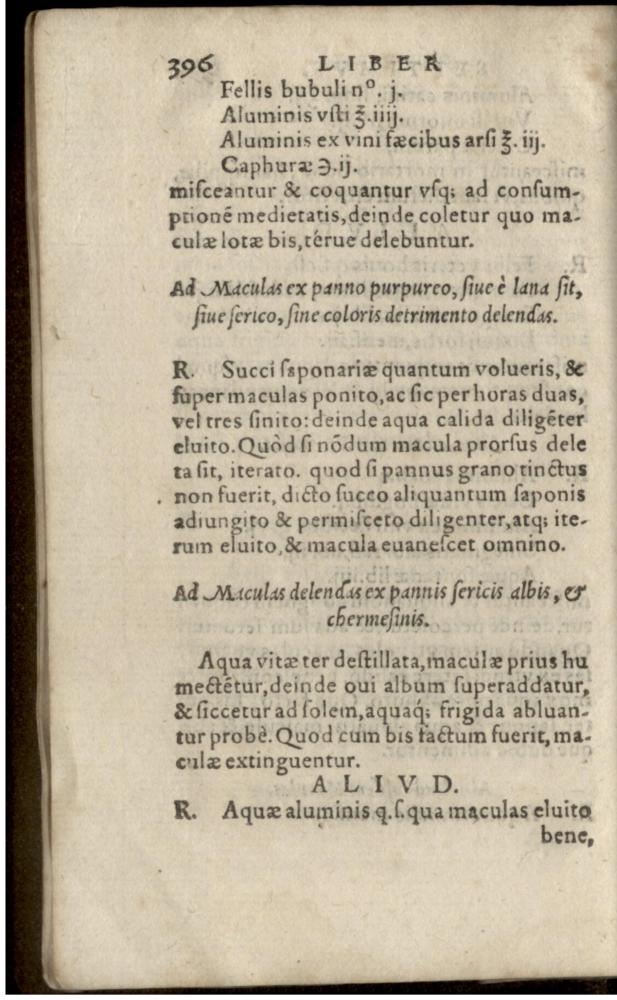 396 LIBER
Fellis bubuli nº. j.
Aluminis vſti ℥.iiij.
Aluminis ex vini fæcibus arſi ℥. iij.
Caphuræ ℈.ij.
miſceantur & coquantur vſq; ad conſum-
ptionē medietatis, deinde coletur quo ma-
culæ lotæ bis, térue delebuntur.
Ad Maculas ex panno purpureo, ſiue è lana ſit,
ſiue ſerico, ſine coloris detrimento delendas.
R. Succi ſaponariæ quantum volueris, &
ſuper maculas ponito, ac ſic per horas duas,
vel tres ſinito: deinde aqua calida diligēter
eluito. Quòd ſi nōdum macula prorſus dele
ta ſit, iterato. quod ſi pannus grano tinctus
non fuerit, dicto ſucco aliquantum ſaponis
adiungito & permiſceto diligenter, atq; ite-
rum eluito, & macula euaneſcet omnino.
Ad Maculas delendas ex pannis ſericis albis, &
chermeſinis.
Aqua vitæ ter deſtillata, maculæ prius hu
mectētur, deinde oui album ſuperaddatur,
& ſiccetur ad ſolem, aquaq́; frigida abluan-
tur probè. Quod cum bis factum fuerit, ma-
culæ extinguentur.
ALIVD.
R. Aquæ aluminis q.ſ. qua maculas eluito
bene,